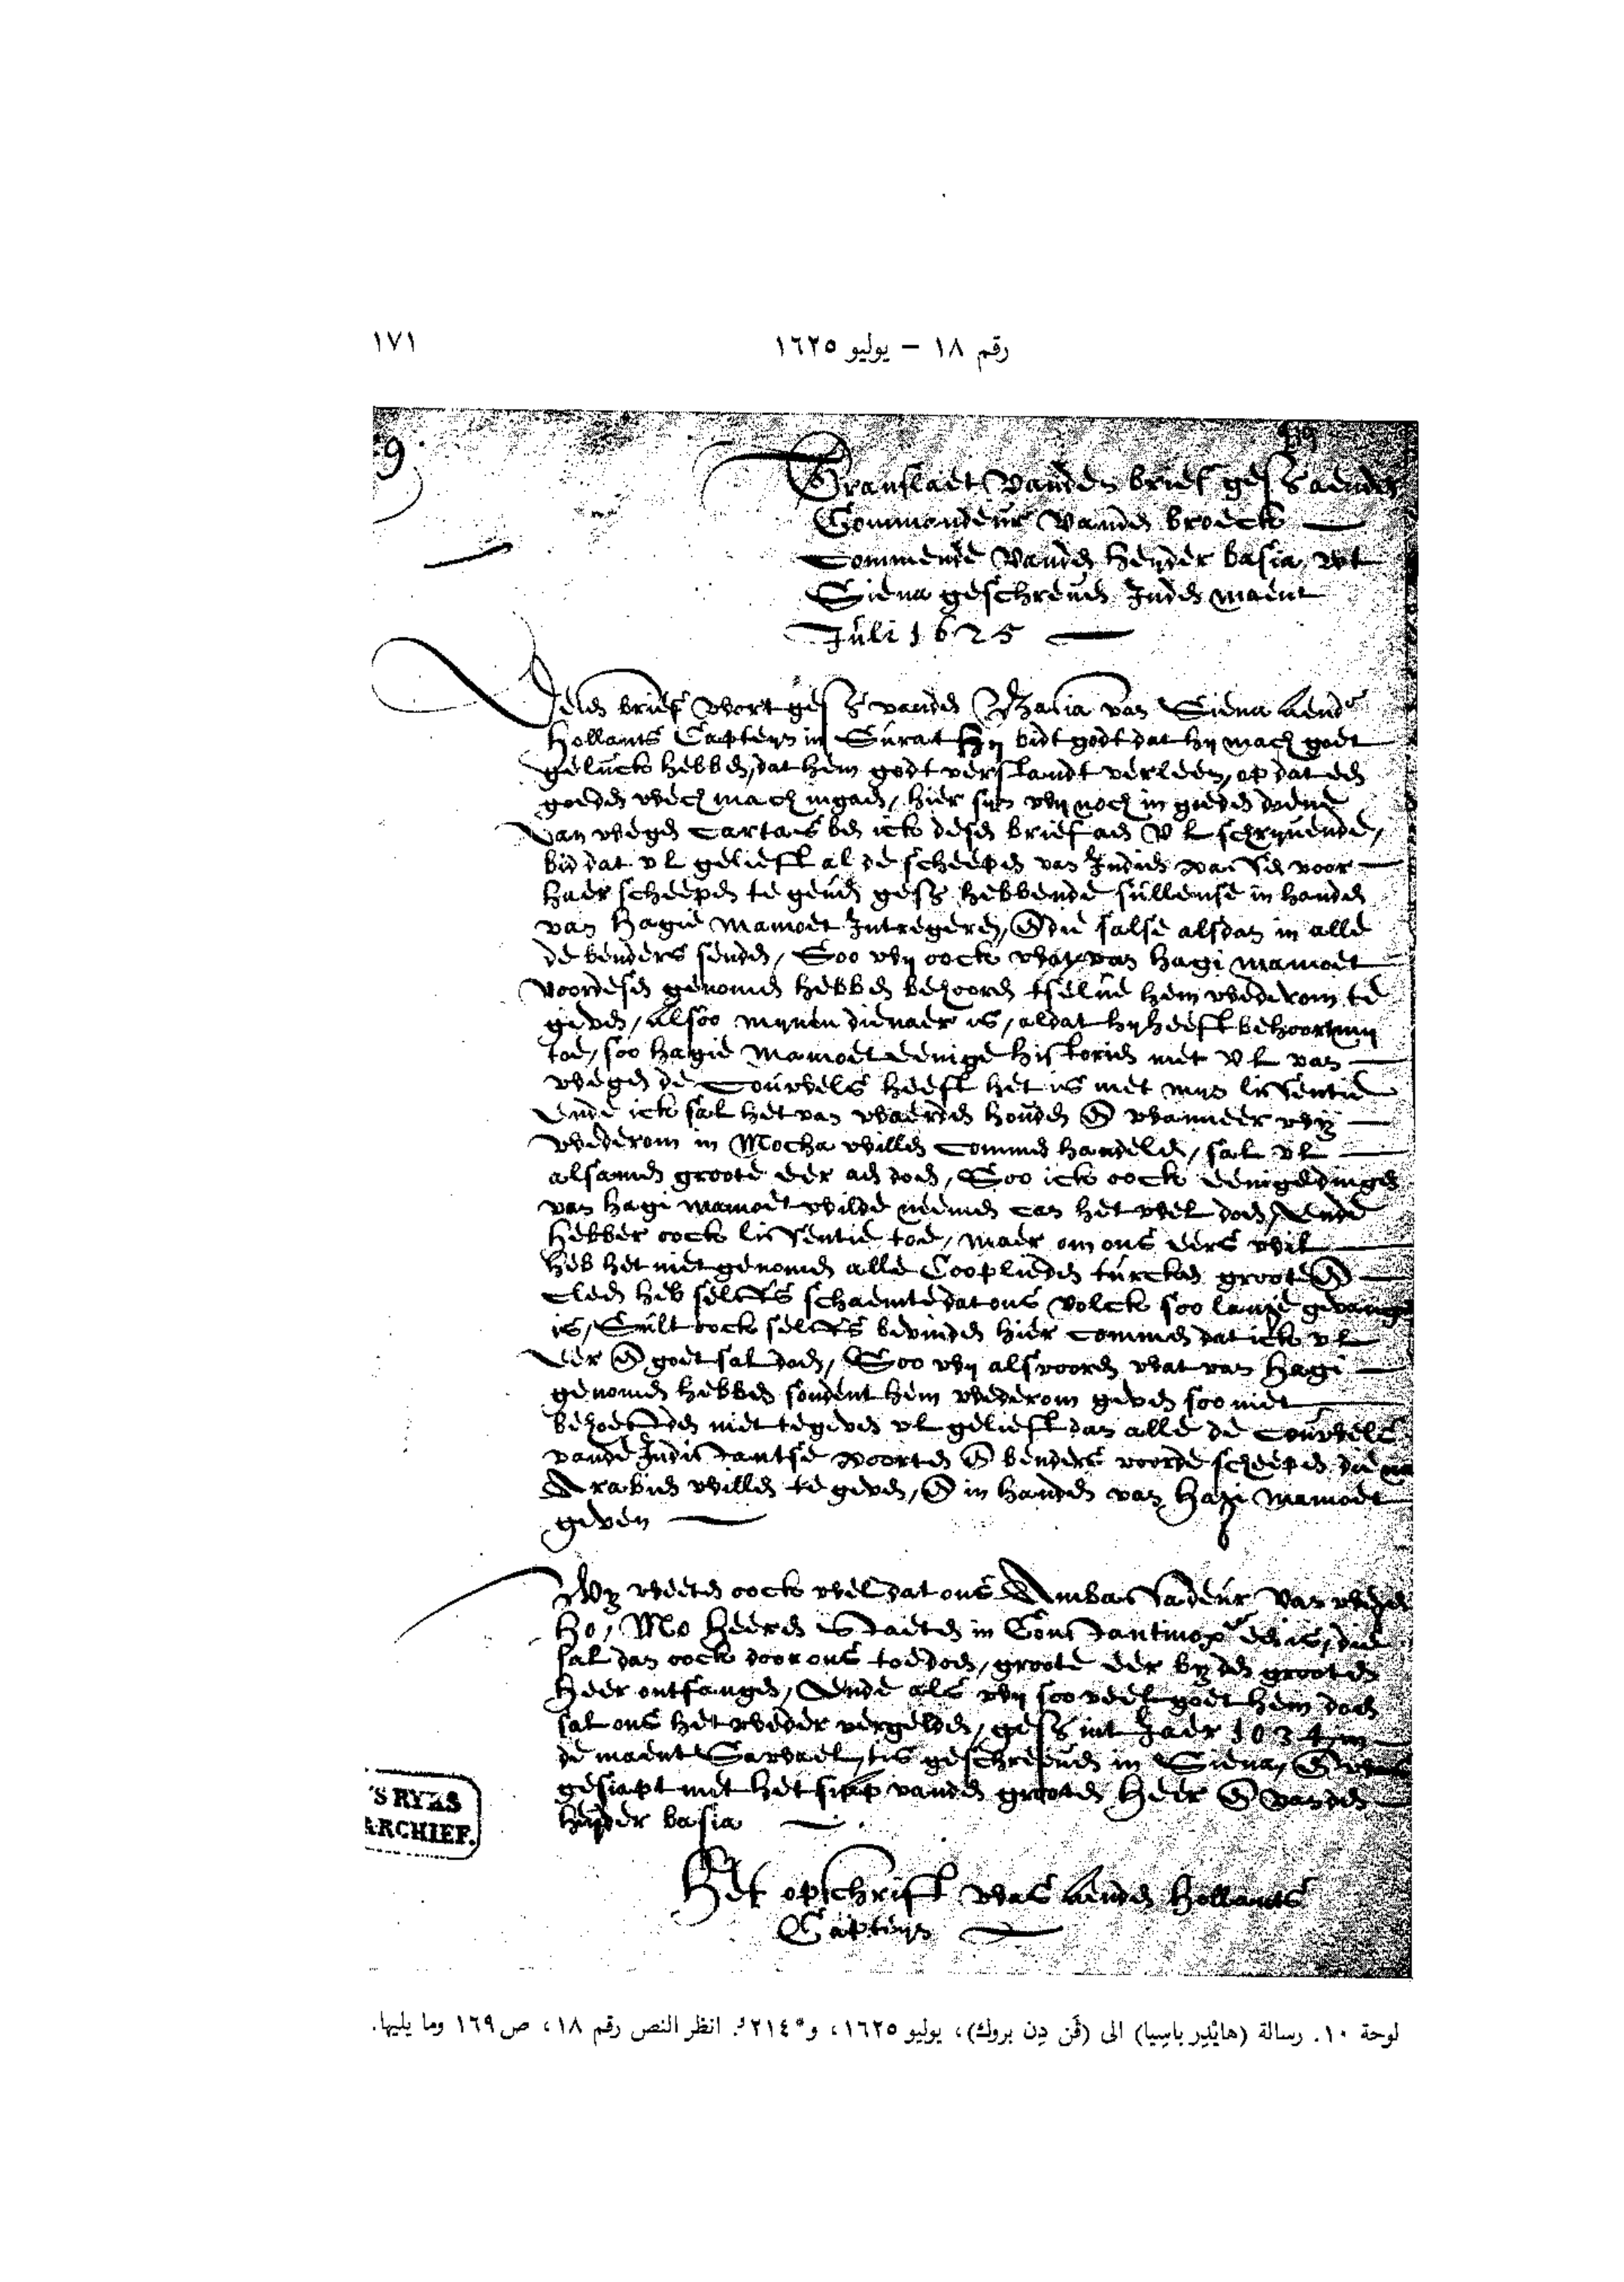 رقم ١٨ – يوليو ١٦٢٥
١٧١
9
Translaet vanden brief ges͠ aenden
Commandeur vanden broecke
commende vanden heyder basia, wt
Siena geschreven Inden maent
Juli 1625
Desen brief wort ges͠ vanden Basia van Siena aende
Hollants Capteyn in Surat hij bidt godt dat hij mach godt
geluck hebben, dat hem godt verstandt verleen, op dat een
goeden wech mach ingaen, hier sijn wij noch in goeden doene
van wegen cartas ben ick desen brief aen v l schrijvende,
bid dat vl gelieft al de scheepen van Indien passe voor
haer scheepen te geven ges͠ hebbende sullense in handen
van Hagie Mamoet Intregeren, en die salse alsdan in alle
de benders senden, Soo wij oock wat van Hagi Mamoet
voordesen genomen hebben behooren tselve hem wederom te
geven, alsoo mijnen dienaer is, al dat hij heeft behoort mij
toe, soo hagie Mamoet eenige historien met vl van
wegen de courels heeft het is met mijn lissentie
Ende ick sal het van waerden houden en wanneer wij
wederom in Mocha willen commen handelen, sal vl
alsamen groote eer aen doen, Soo ick oock eenige dingen
van hagi mamoet wilde nemen can het wel doen, Ende
hebber oock lissentie toe, maer om ons eers wil
heb het niet genomen alle Cooplieden turcken groot en
cleen heb selffs schaemte dat ons volck soo lange gevangen
is, Sult oock selffs bevinden hier commen dat ick vl
eer en goet sal doen, Soo wij als vooren wat van Hagi
genomen hebben soudent hem wederom geven soo niet
behoefden niet te geven vl gelieft dan alle de courels
vande Indistantse poorten en benders voorde scheepen die na
Arabien willen te geven, en in handen van Hagi Mamoet
geven
Wy weeten oock wel dat ons Ambassadeur van wegen
Ho, Mo Heeren Staeten in Constantinop͠ en is, die
sal dan oock door ons toedoen, groote eer by den grooten
Heer ontfangen, Ende als wij soo veel goet hem doen
sal ons het weder vergelden, ges͠ int Jaer 1034 in
de maent Sarvael, tis geschreven in Siena, en
gesiapt met het siap vanden grooten Heer en vanden
heyder basia
'S RYKS
ARCHIEF.
Het opschrift was aenden Hollants
Capteyn
لوحة ١٠. رسالة (هايْدِر باسِيا) الى (ڤَن دِن بروك)، يوليو ١٦٢٥، و*٢١٤ﺩ. انظر النص رقم ١٨، ص١٦٩ وما يليها.